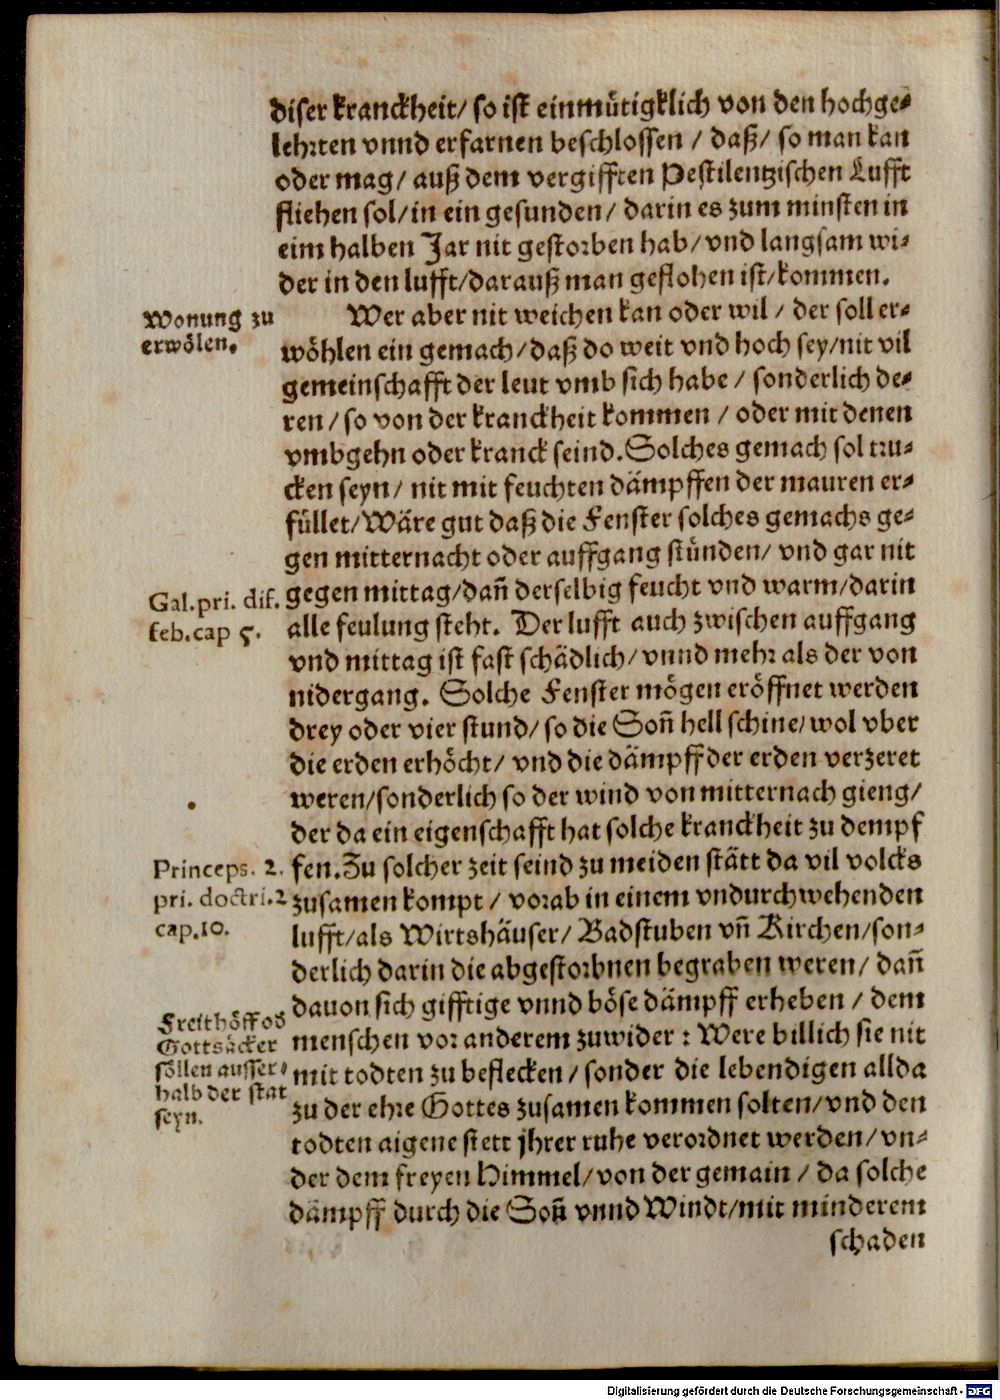 diser kranckheit/ so ist einmuͤtigklich von den hochge⸗
lehrten vnnd erfarnen beschlossen / daß/ so man kan
oder mag/ auß dem vergifften Pestilentzischen Lufft
fliehen sol/in ein gesunden/ darin es zum minsten in
eim halben Jar nit gestorben hab/vnd langsam wi⸗
der in den lufft/darauß man geflohen ist/kommen.
Wonung zu
erwoͤlen.
Wer aber nit weichen kan oder wil / der soll er⸗
woͤhlen ein gemach/daß do weit vnd hoch sey/nit vil
gemeinschafft der leut vmb sich habe / sonderlich de⸗
ren/so von der kranckheit kommen / oder mit denen
vmbgehn oder kranck seind.Solches gemach sol tru⸗
cken seyn/ nit mit feuchten daͤmpffen der mauren er⸗
fuͤllet/Waͤre gut daß die Fenster solches gemachs ge⸗
gen mitternacht oder auffgang stuͤnden/ vnd gar nit
Gal.pri. dif.
feb.cap 5.
gegen mittag/dañ derselbig feucht vnd warm/darin
alle feulung steht. Der lufft auch zwischen auffgang
vnd mittag ist fast schaͤdlich/vnnd mehr als der von
nidergang. Solche Fenster moͤgen eroͤffnet werden
drey oder vier stund/so die Soñ hell schine/wol vber
die erden erhoͤcht/ vnd die daͤmpff der erden verzeret
weren/sonderlich so der wind von mitternach gieng/
der da ein eigenschafft hat solche kranckheit zu dempf
Princeps. 2.
pri. doctri.2
cap.10.
fen.Zu solcher zeit seind zu meiden staͤtt da vil volcks
zusamen kompt / vorab in einem vndurchwehenden
lufft/als Wirtshaͤuser/ Badstuben vñ Kirchen/son⸗
derlich darin die abgestorbnen begraben weren/ dañ
Freithoͤff od
Gottsaͤcker
soͤllen ausser⸗
halb der stat
seyn.
dauon sich gifftige vnnd boͤse daͤmpff erheben / dem
menschen vor anderem zuwider : Were billich sie nit
mit todten zu beflecken/sonder die lebendigen allda
zu der ehre Gottes zusamen kommen solten/vnd den
todten aigene stett jhrer ruhe verordnet werden/vn⸗
der dem freyen Himmel/von der gemain / da solche
daͤmpff durch die Soñ vnnd Windt/mit minderem
schaden
Digitalisierung gefördert durch die Deutsche Forschungsgemeinschaft - DFG